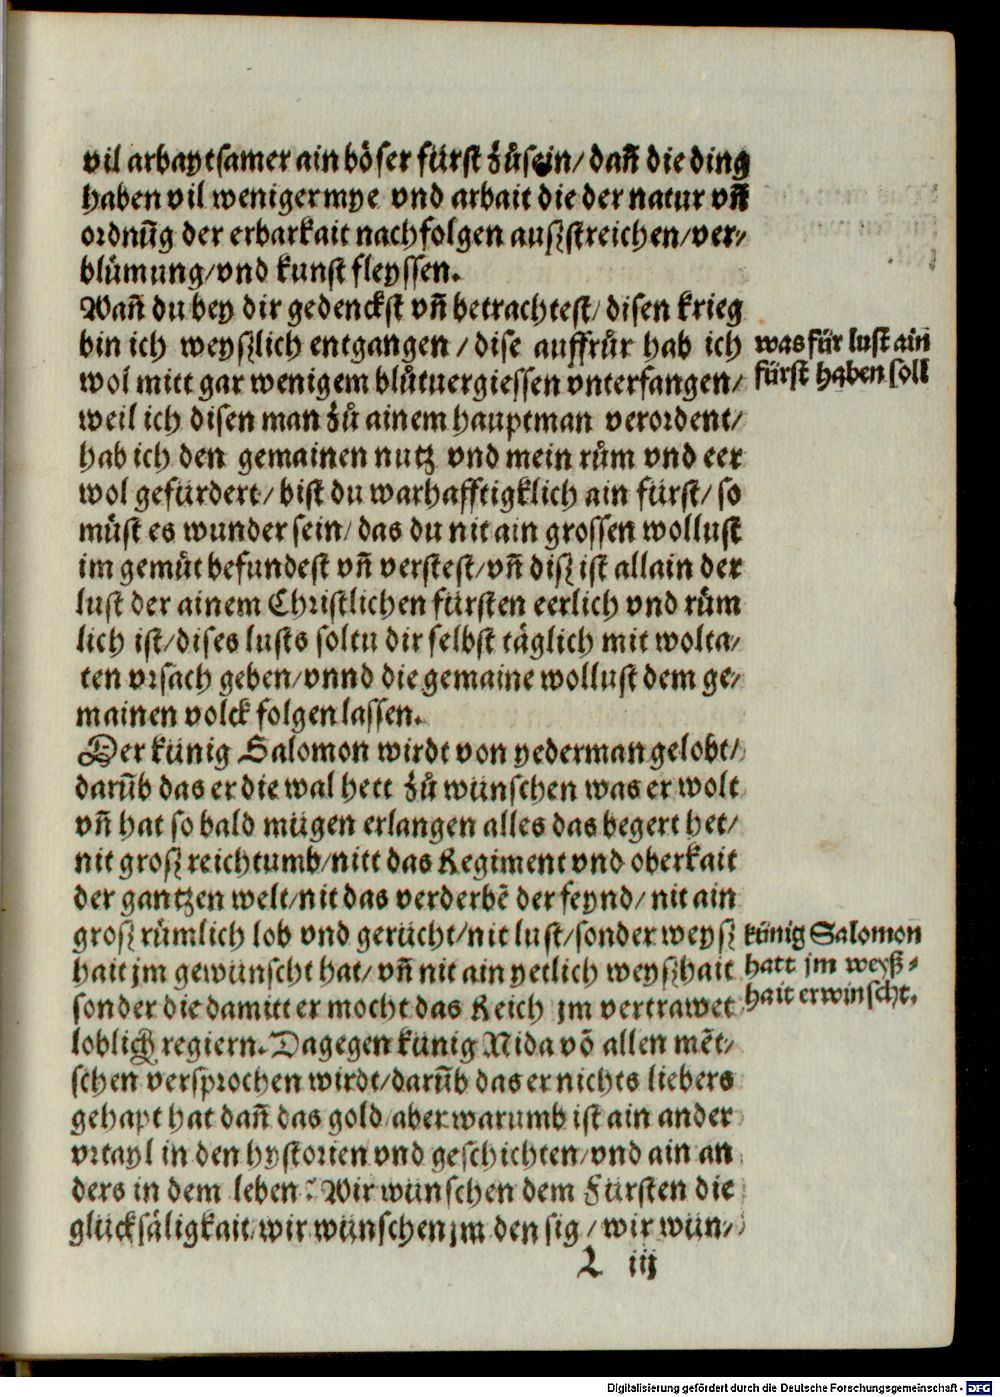 vil arbaytsamer ain böser fürst zůsein/ dañ die ding
haben vil weniger mye vnd arbait die der natur vñ
ordnũg der erbarkait nachfolgen auszstreichen/ ver/
blůmung/ vnd kunst fleyssen.
Wañ du bey dir gedenckst vñ betrachtest/ disen krieg
bin ich weyszlich entgangen / dise auffrůr hab ich
wol mitt gar wenigem blůtuergiessen vnterfangen/
was für lust ain
fürst haben soll
weil ich disen man zů ainem hauptman verordent/
hab ich den gemainen nutz vnd mein rům vnd eer
wol gefürdert/ bist du warhafftigklich ain fürst/ so
můst es wunder sein/ das du nit ain grossen wollust
im gemůt befundest vñ verstest/ vñ disz ist allain der
lust der ainem Christlichen fürsten eerlich vnd rům
lich ist/ dises lusts soltu dir selbst täglich mit wolta/
ten vrsach geben/ vnnd die gemaine wollust dem ge/
mainen volck folgen lassen.
Der künig Salomon wirdt von yederman gelobt/
darũb das er die wal hett zů wünschen was er wolt
vñ hat so bald mügen erlangen alles das begert het/
nit grosz reichtumb/ nitt das Regiment vnd oberkait
der gantzen welt/ nit das verderbẽ der feynd/ nit ain
grosz růmlich lob vnd gerücht/ nit lust/ sonder weysz
hait jm gewünscht hat/ vñ nit ain yetlich weyszhait
sonder die damitt er mocht das Reich jm vertrawet
künig Salomon
hatt jm weyß⸗
hait erwinscht.
loblich regiern. Dagegen künig Mida võ allen mẽt/
schen versprochen wirdt/ darũb das er nichts liebers
gehapt hat dañ das gold/ aber warumb ist ain ander
vrtayl in den hystorien vnd geschichten/ vnd ain an
ders in dem leben? Wir wünschen dem Fürsten die
glücksäligkait/ wir wünschen jm den sig / wir wün/
L iij
Digitalisierung gefördert durch die Deutsche Forschungsgemeinschaft - DFG